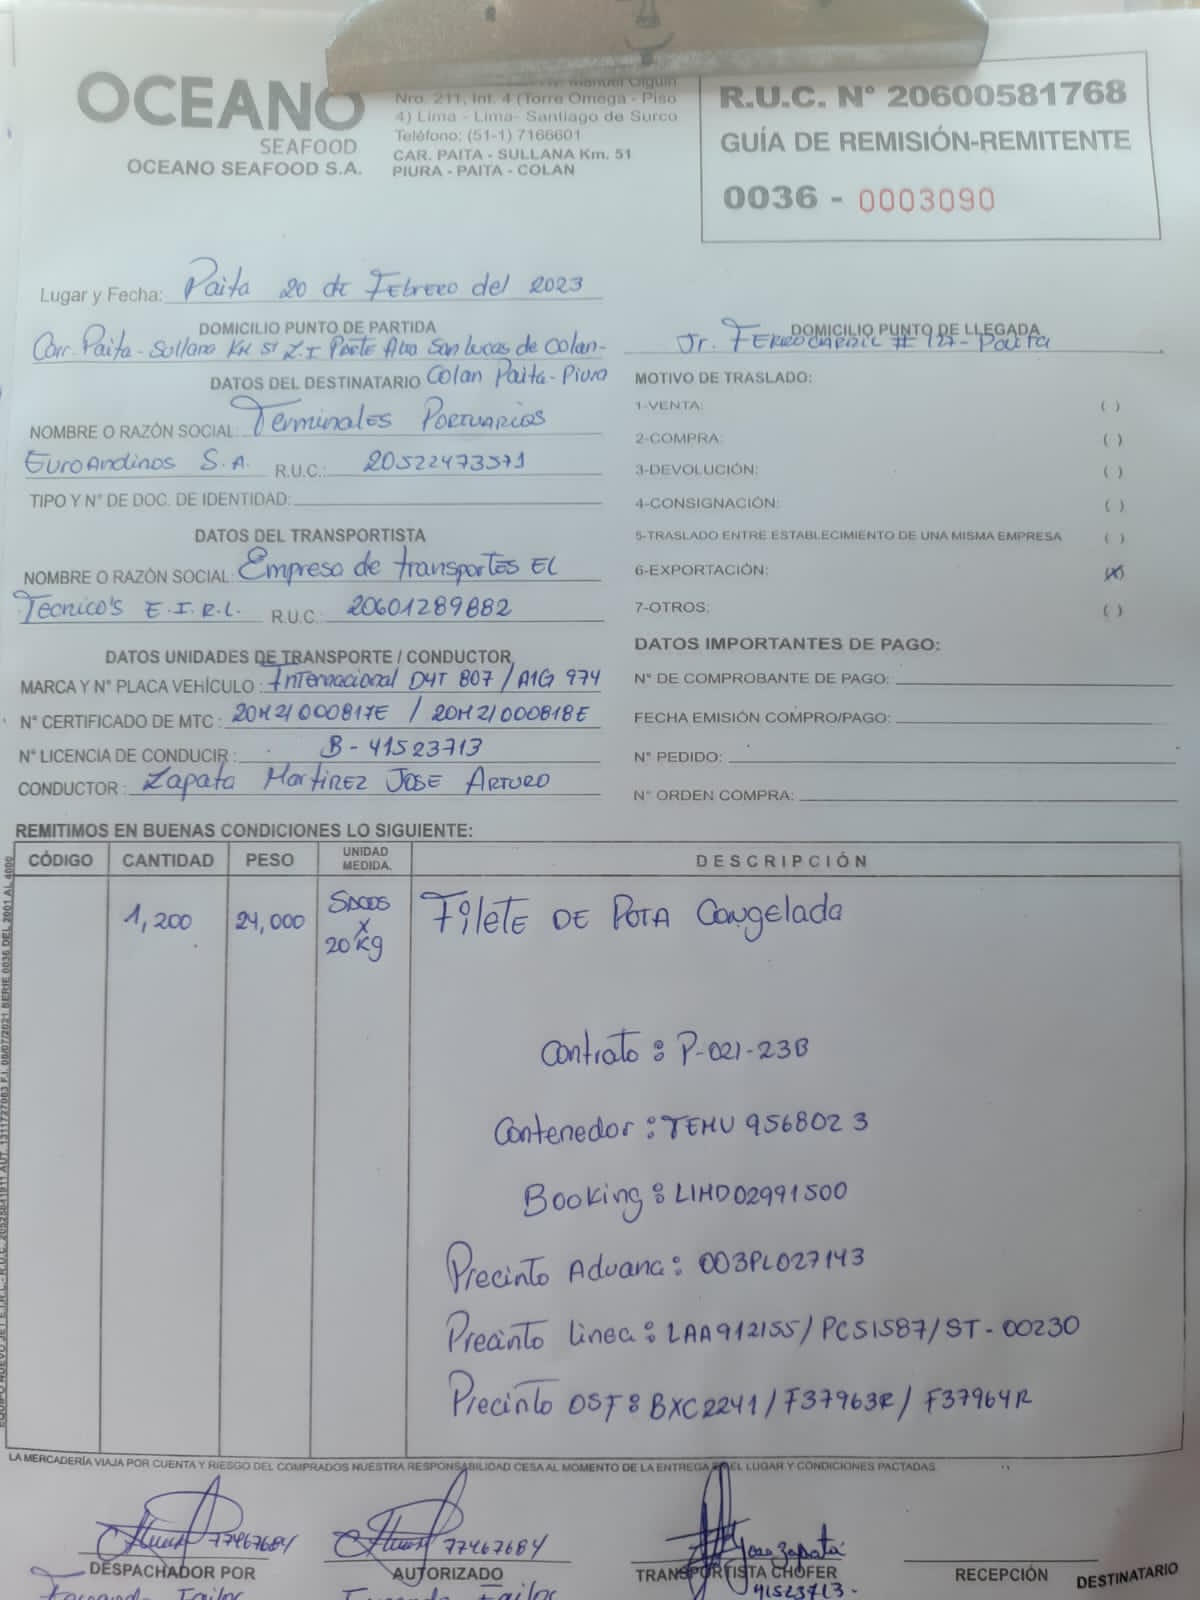 OCEANO
SEAFOOD
OCEANO SEAFOOD S.A.
Manuel Olguin
Nro. 211, Int. 4 (Torre Omega - Piso
4) Lima - Lima- Santiago de Surco
Teléfono: (51-1) 7166601
CAR. PAITA - SULLANA Km. 51
PIURA - PAITA - COLAN
R.U.C. N° 20600581768
GUÍA DE REMISIÓN-REMITENTE
0036 - 0003090
Lugar y Fecha: Paita 20 de Febrero del 2023
DOMICILIO PUNTO DE PARTIDA
Carr. Paita - Sullana KM 51 Z.I Parte Alta San Lucas de Colan-
Colan Paita - Piura
DOMICILIO PUNTO DE LLEGADA
Jr. Ferrocarril # 127- Paita
DATOS DEL DESTINATARIO
NOMBRE O RAZÓN SOCIAL: Terminales Portuarios
EuroAndinos S.A. R.U.C.: 20522473571
TIPO Y N° DE DOC. DE IDENTIDAD:
DATOS DEL TRANSPORTISTA
NOMBRE O RAZÓN SOCIAL: Empresa de transportes El
Tecnico's E.I.R.L. R.U.C.: 20601289882
DATOS UNIDADES DE TRANSPORTE / CONDUCTOR
MARCA Y N° PLACA VEHÍCULO : Internacional D4T 807 / A1G 974
N° CERTIFICADO DE MTC : 20M21000817E / 20M21000818E
N° LICENCIA DE CONDUCIR : B - 41523713
CONDUCTOR : Zapata Martinez Jose Arturo
MOTIVO DE TRASLADO:
1-VENTA: ( )
2-COMPRA: ( )
3-DEVOLUCIÓN: ( )
4-CONSIGNACIÓN: ( )
5-TRASLADO ENTRE ESTABLECIMIENTO DE UNA MISMA EMPRESA ( )
6-EXPORTACIÓN: (X)
7-OTROS: ( )
DATOS IMPORTANTES DE PAGO:
N° DE COMPROBANTE DE PAGO:
FECHA EMISIÓN COMPRO/PAGO:
N° PEDIDO:
N° ORDEN COMPRA:
REMITIMOS EN BUENAS CONDICIONES LO SIGUIENTE:
CÓDIGO CANTIDAD PESO UNIDAD MEDIDA. DESCRIPCIÓN
1,200 24,000 Sacos x 20 Kg Filete de Pota Congelada
Contrato : P-021-23B
Contenedor : TEMU 956802 3
Booking : LIMD02991500
Precinto Aduana : 003PL027143
Precinto linea : LAA912155/ PCS1587/ ST - 00230
Precinto OSF : BXC2241 / F37963R / F37964R
LA MERCADERÍA VIAJA POR CUENTA Y RIESGO DEL COMPRADOS NUESTRA RESPONSABILIDAD CESA AL MOMENTO DE LA ENTREGA EN EL LUGAR Y CONDICIONES PACTADAS
77467684
DESPACHADOR POR
77467684
AUTORIZADO
Jose Zapata
TRANSPORTISTA CHOFER
41523713.
RECEPCIÓN
DESTINATARIO